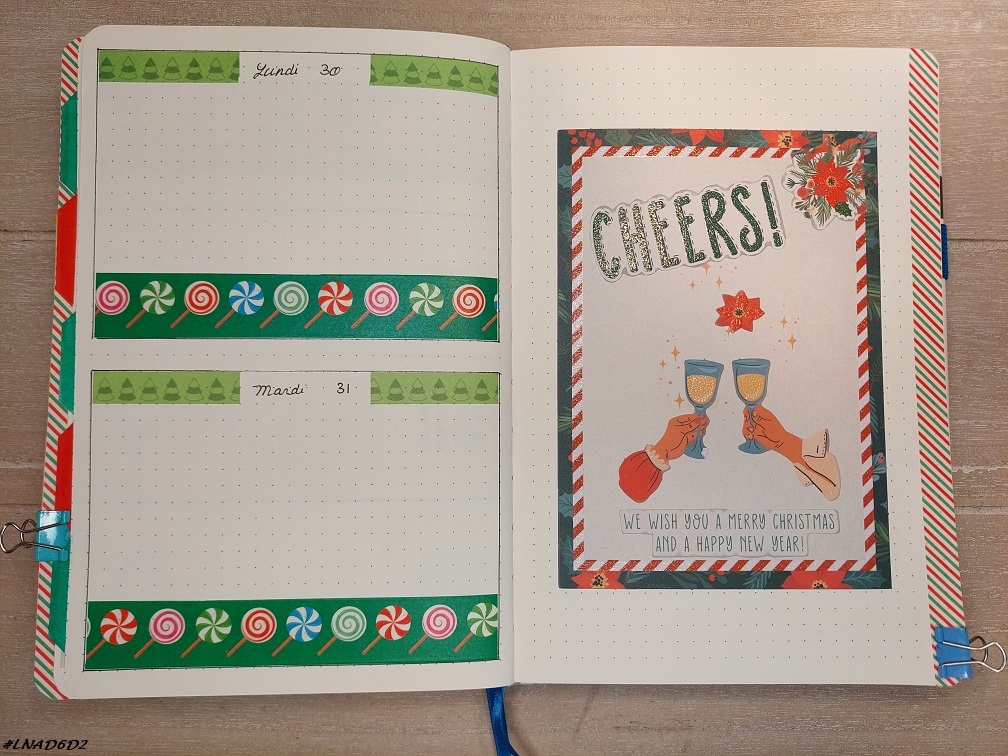 Lundi 30
Mardi 31
CHEERS!
WE WISH YOU A MERRY CHRISTMAS
AND A HAPPY NEW YEAR!
#LNAD6D2